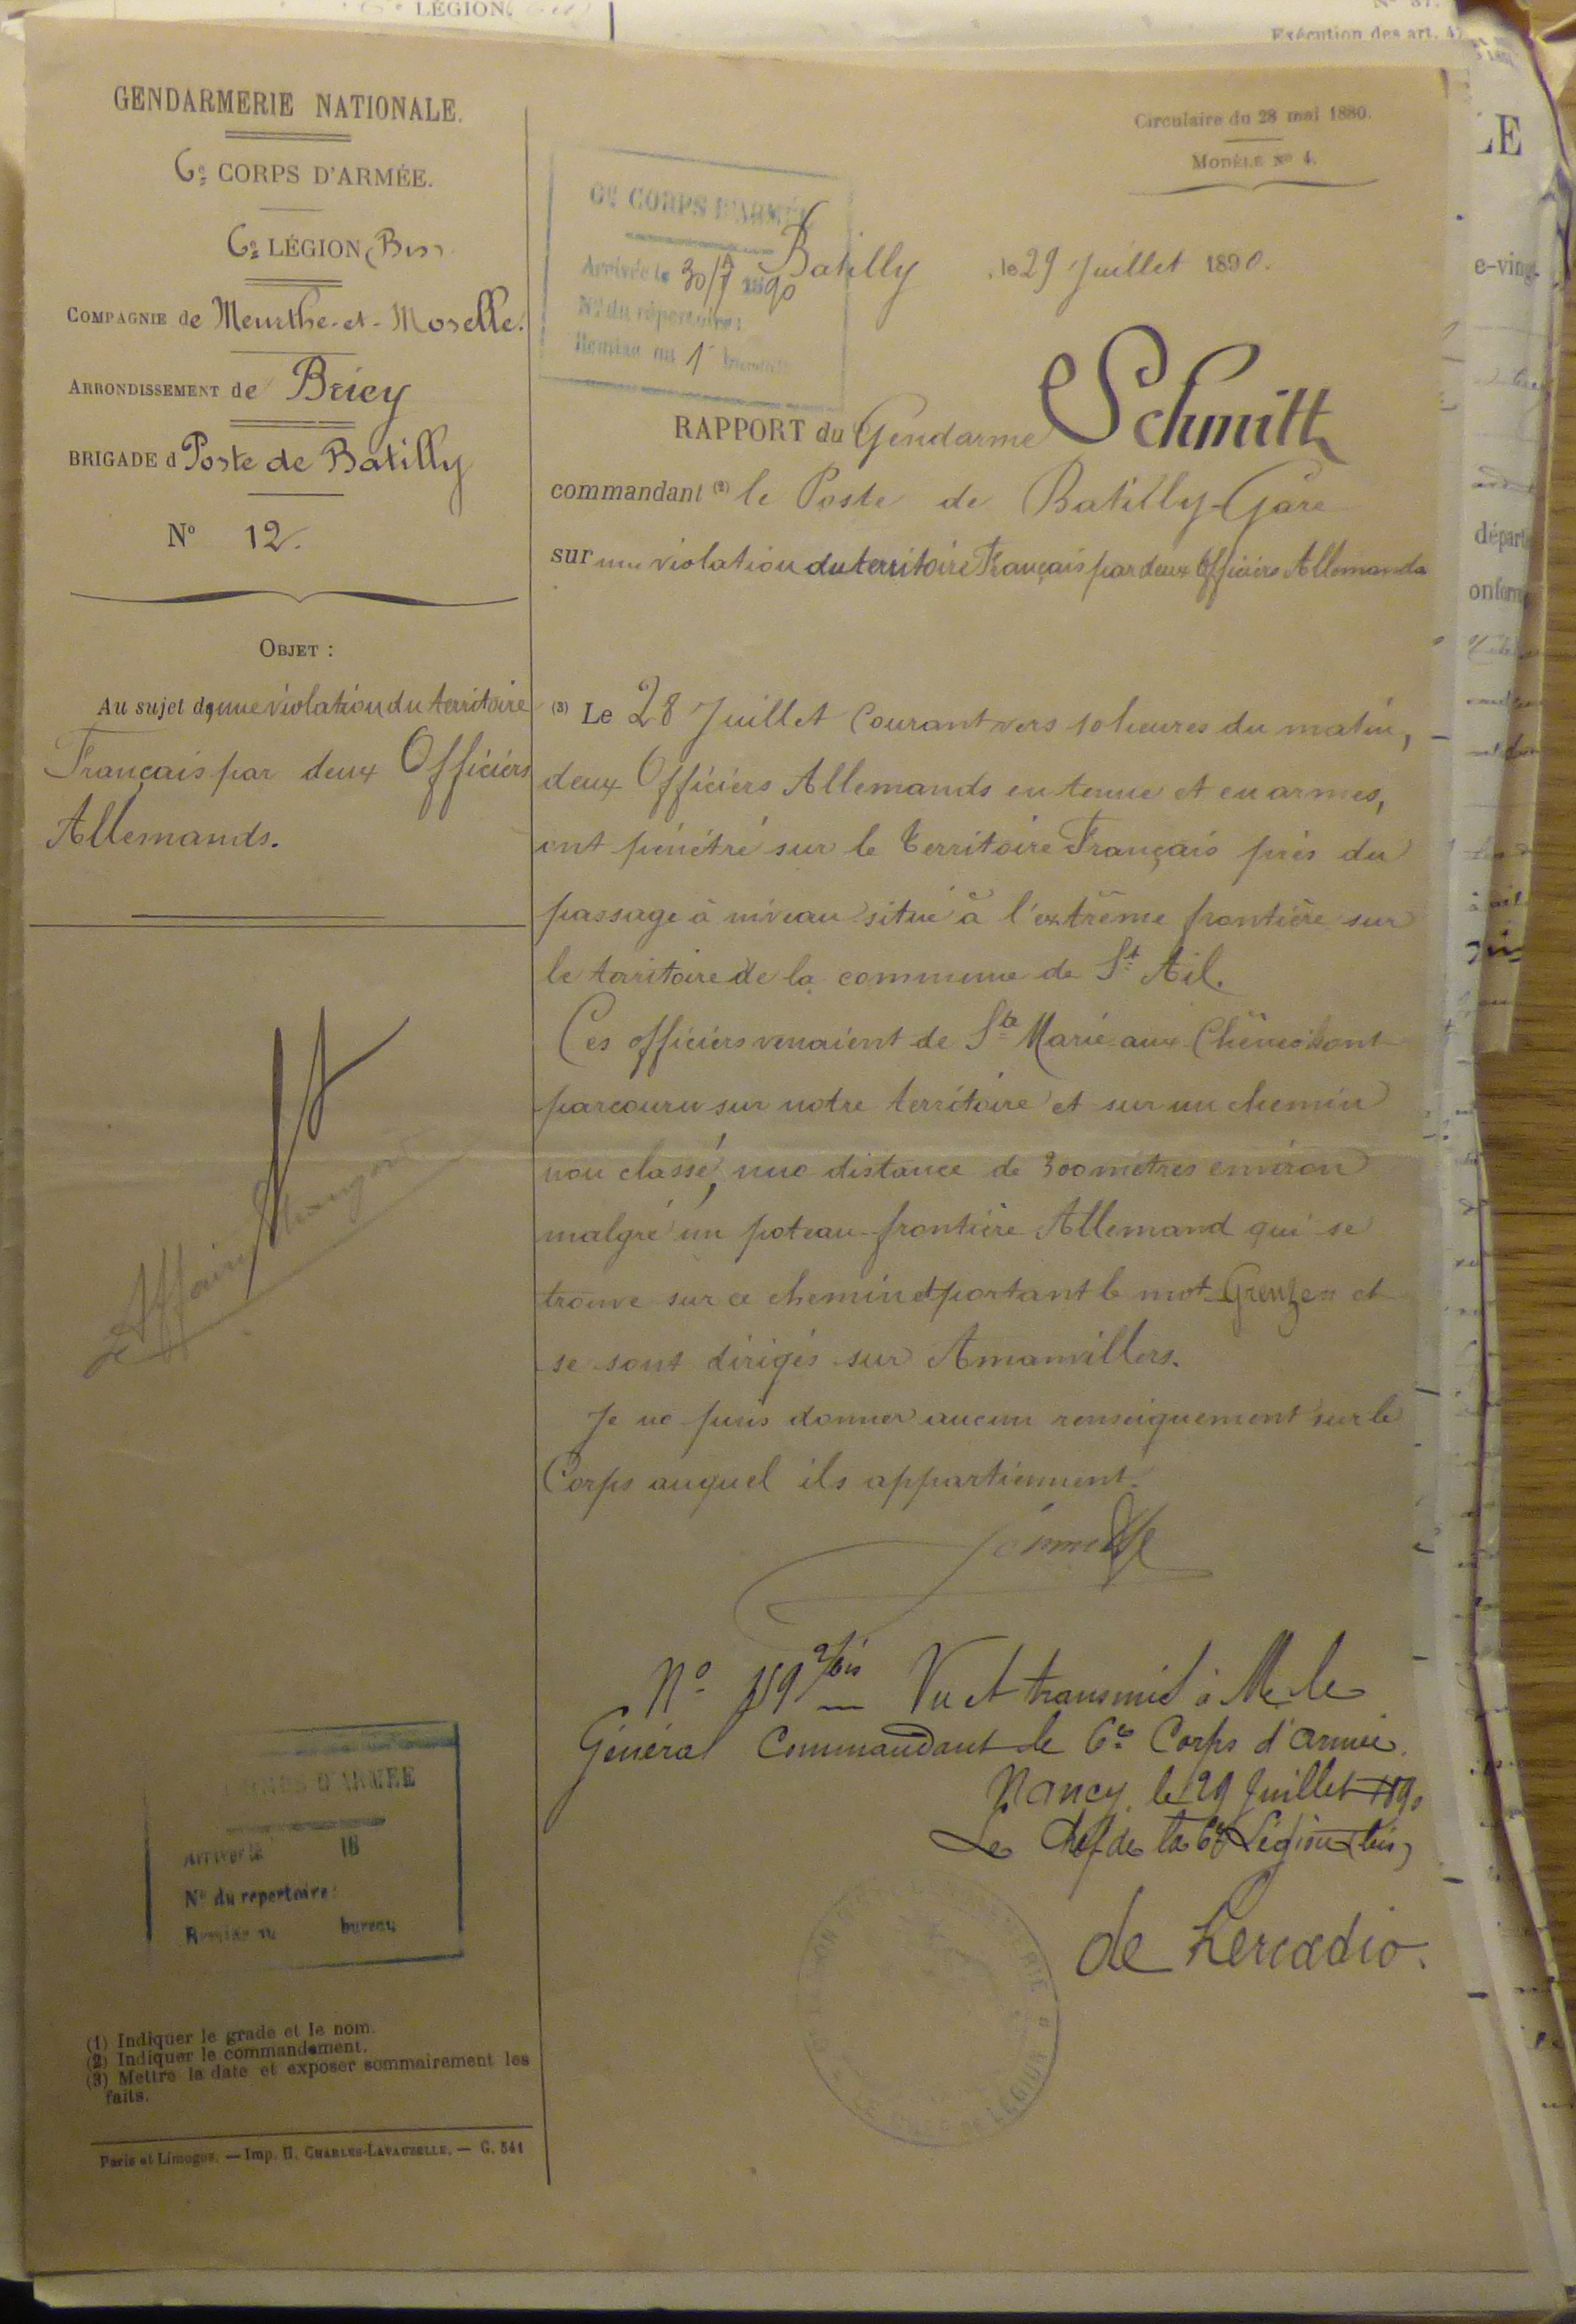 LÉGION
Exécution des art.
GENDARMERIE NATIONALE.
6e CORPS D'ARMÉE.
6e LÉGION (Bis)
COMPAGNIE de Meurthe-et-Moselle.
ARRONDISSEMENT de Briey
BRIGADE d Poste de Batilly
No 12.
OBJET :
Au sujet d'une violation du territoire
Français par deux Officiers
Allemands.
Affaire
CORPS D'ARMÉE
Arrivée le 18
No du répertoire :
Remise au bureau
(1) Indiquer le grade et le nom.
(2) Indiquer le commandement.
(3) Mettre la date et exposer sommairement les
faits.
Paris et Limoges. — Imp. H. CHARLES-LAVAUZELLE. — G. 541
Circulaire du 28 mai 1880.
MODÈLE No 4.
6e CORPS D'ARMÉE
Arrivée le 30/7 1890
No du répertoire :
Remise au 1r bureau
Batilly, le 29 Juillet 1890.
RAPPORT du Gendarme Schmitt
commandant (2) le Poste de Batilly-Gare
sur une violation du territoire Français par deux Officiers Allemands
(3) Le 28 Juillet courant vers 10 heures du matin,
deux Officiers Allemands en tenue et en armes,
ont pénétré sur le territoire Français près du
passage à niveau situé à l'extrême frontière sur
le territoire de la commune de St Ail.
Ces officiers venaient de Ste Marie-aux-Chênes ont
parcouru sur notre territoire et sur un chemin
non classé, une distance de 300 mètres environ
malgré un poteau-frontière Allemand qui se
trouve sur ce chemin et portant le mot Grenze et
se sont dirigés sur Amanvillers.
Je ne puis donner aucun renseignement sur le
Corps auquel ils appartiennent.
No 159 2/bis Vu et transmis à M. le
Général Commandant le 6e Corps d'armée.
Nancy, le 29 Juillet 1890
Le Chef de la 6e Légion (bis)
de Kercadio.